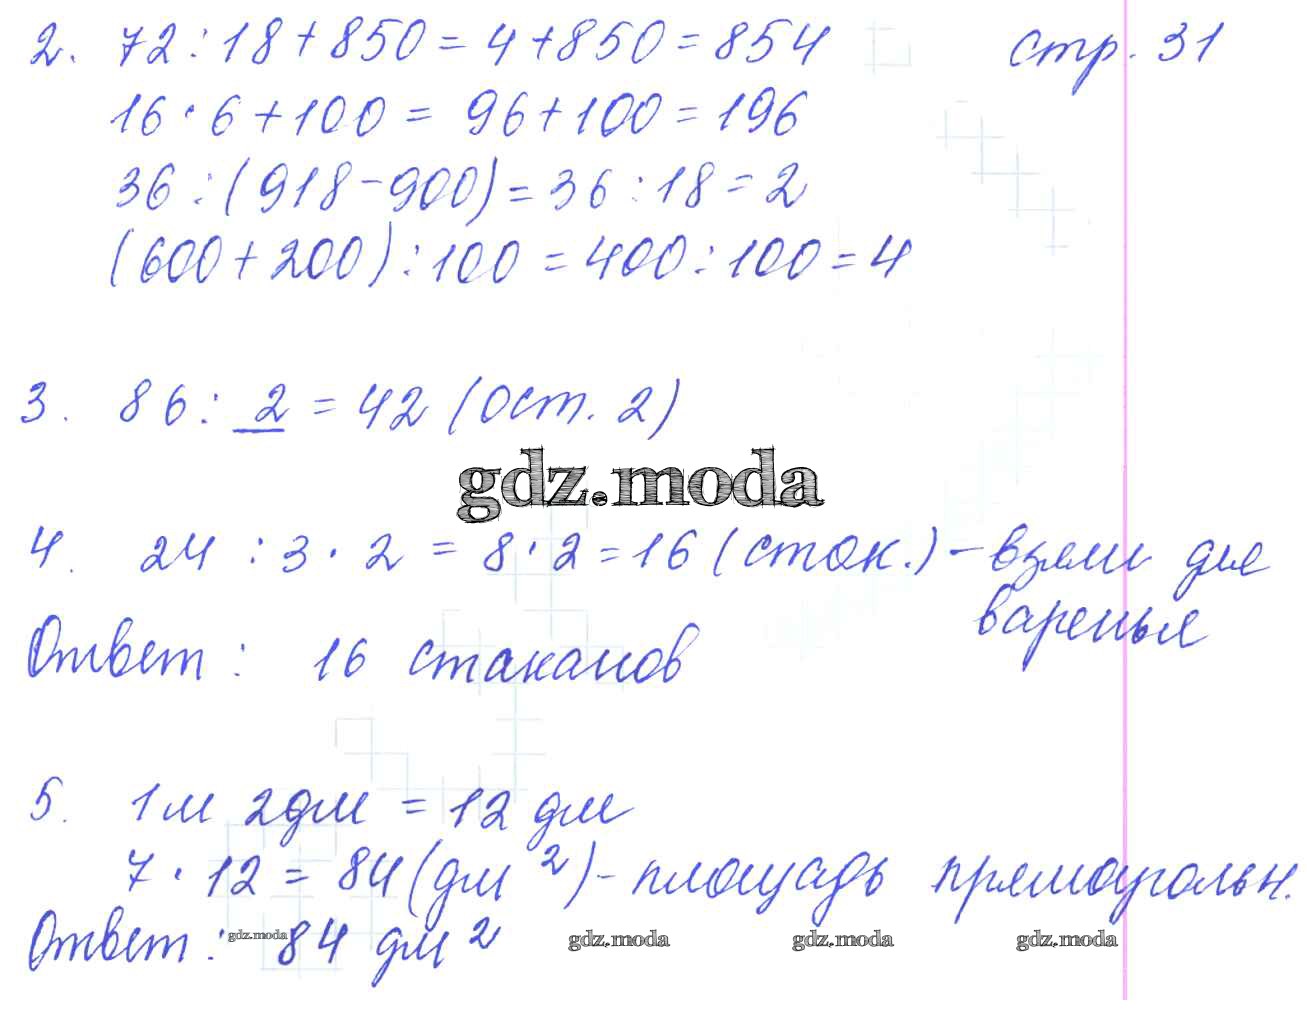 2. 72 : 18 + 850 = 4 + 850 = 854 стр. 31
16 · 6 + 100 = 96 + 100 = 196
36 : (918 - 900) = 36 : 18 = 2
(600 + 200) : 100 = 400 : 100 = 4
3. 86 : 2 = 42 (ост. 2)
gdz.moda
4. 24 : 3 · 2 = 8 · 2 = 16 (стак.) - взяли для
варенья
Ответ : 16 стаканов
5. 1 м 2 дм = 12 дм
7 · 12 = 84 (дм²) - площадь прямоугольн.
Ответ : 84 дм²
gdz.moda gdz.moda gdz.moda gdz.moda